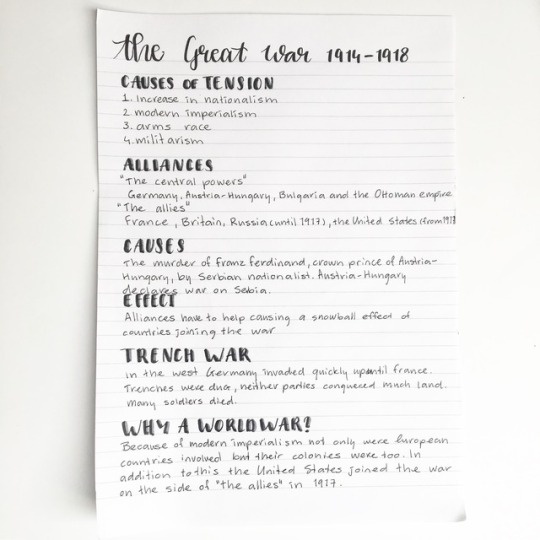 the Great war 1914-1918
CAUSES OF TENSION
1. Increase in nationalism
2. modern imperialism
3. arms race
4. militarism
ALLIANCES
"The central powers"
Germany, Austria-Hungary, Bulgaria and the Ottoman empire
"The allies"
France, Britain, Russia (until 1917), the United States (from 1917)
CAUSES
The murder of franz ferdinand, crown prince of Austria-
Hungary, by Serbian nationalist. Austria-Hungary
declares war on Sebia.
EFFECT
Alliances have to help causing a snowball effect of
countries joining the war
TRENCH WAR
in the west Germany invaded quickly upuntil france.
Trenches were dug, neither parties conquered much land.
many soldiers died.
WHY A WORLDWAR?
Because of modern imperialism not only were European
countries involved but their colonies were too. In
addition to this the United States joined the war
on the side of "the allies" in 1917.